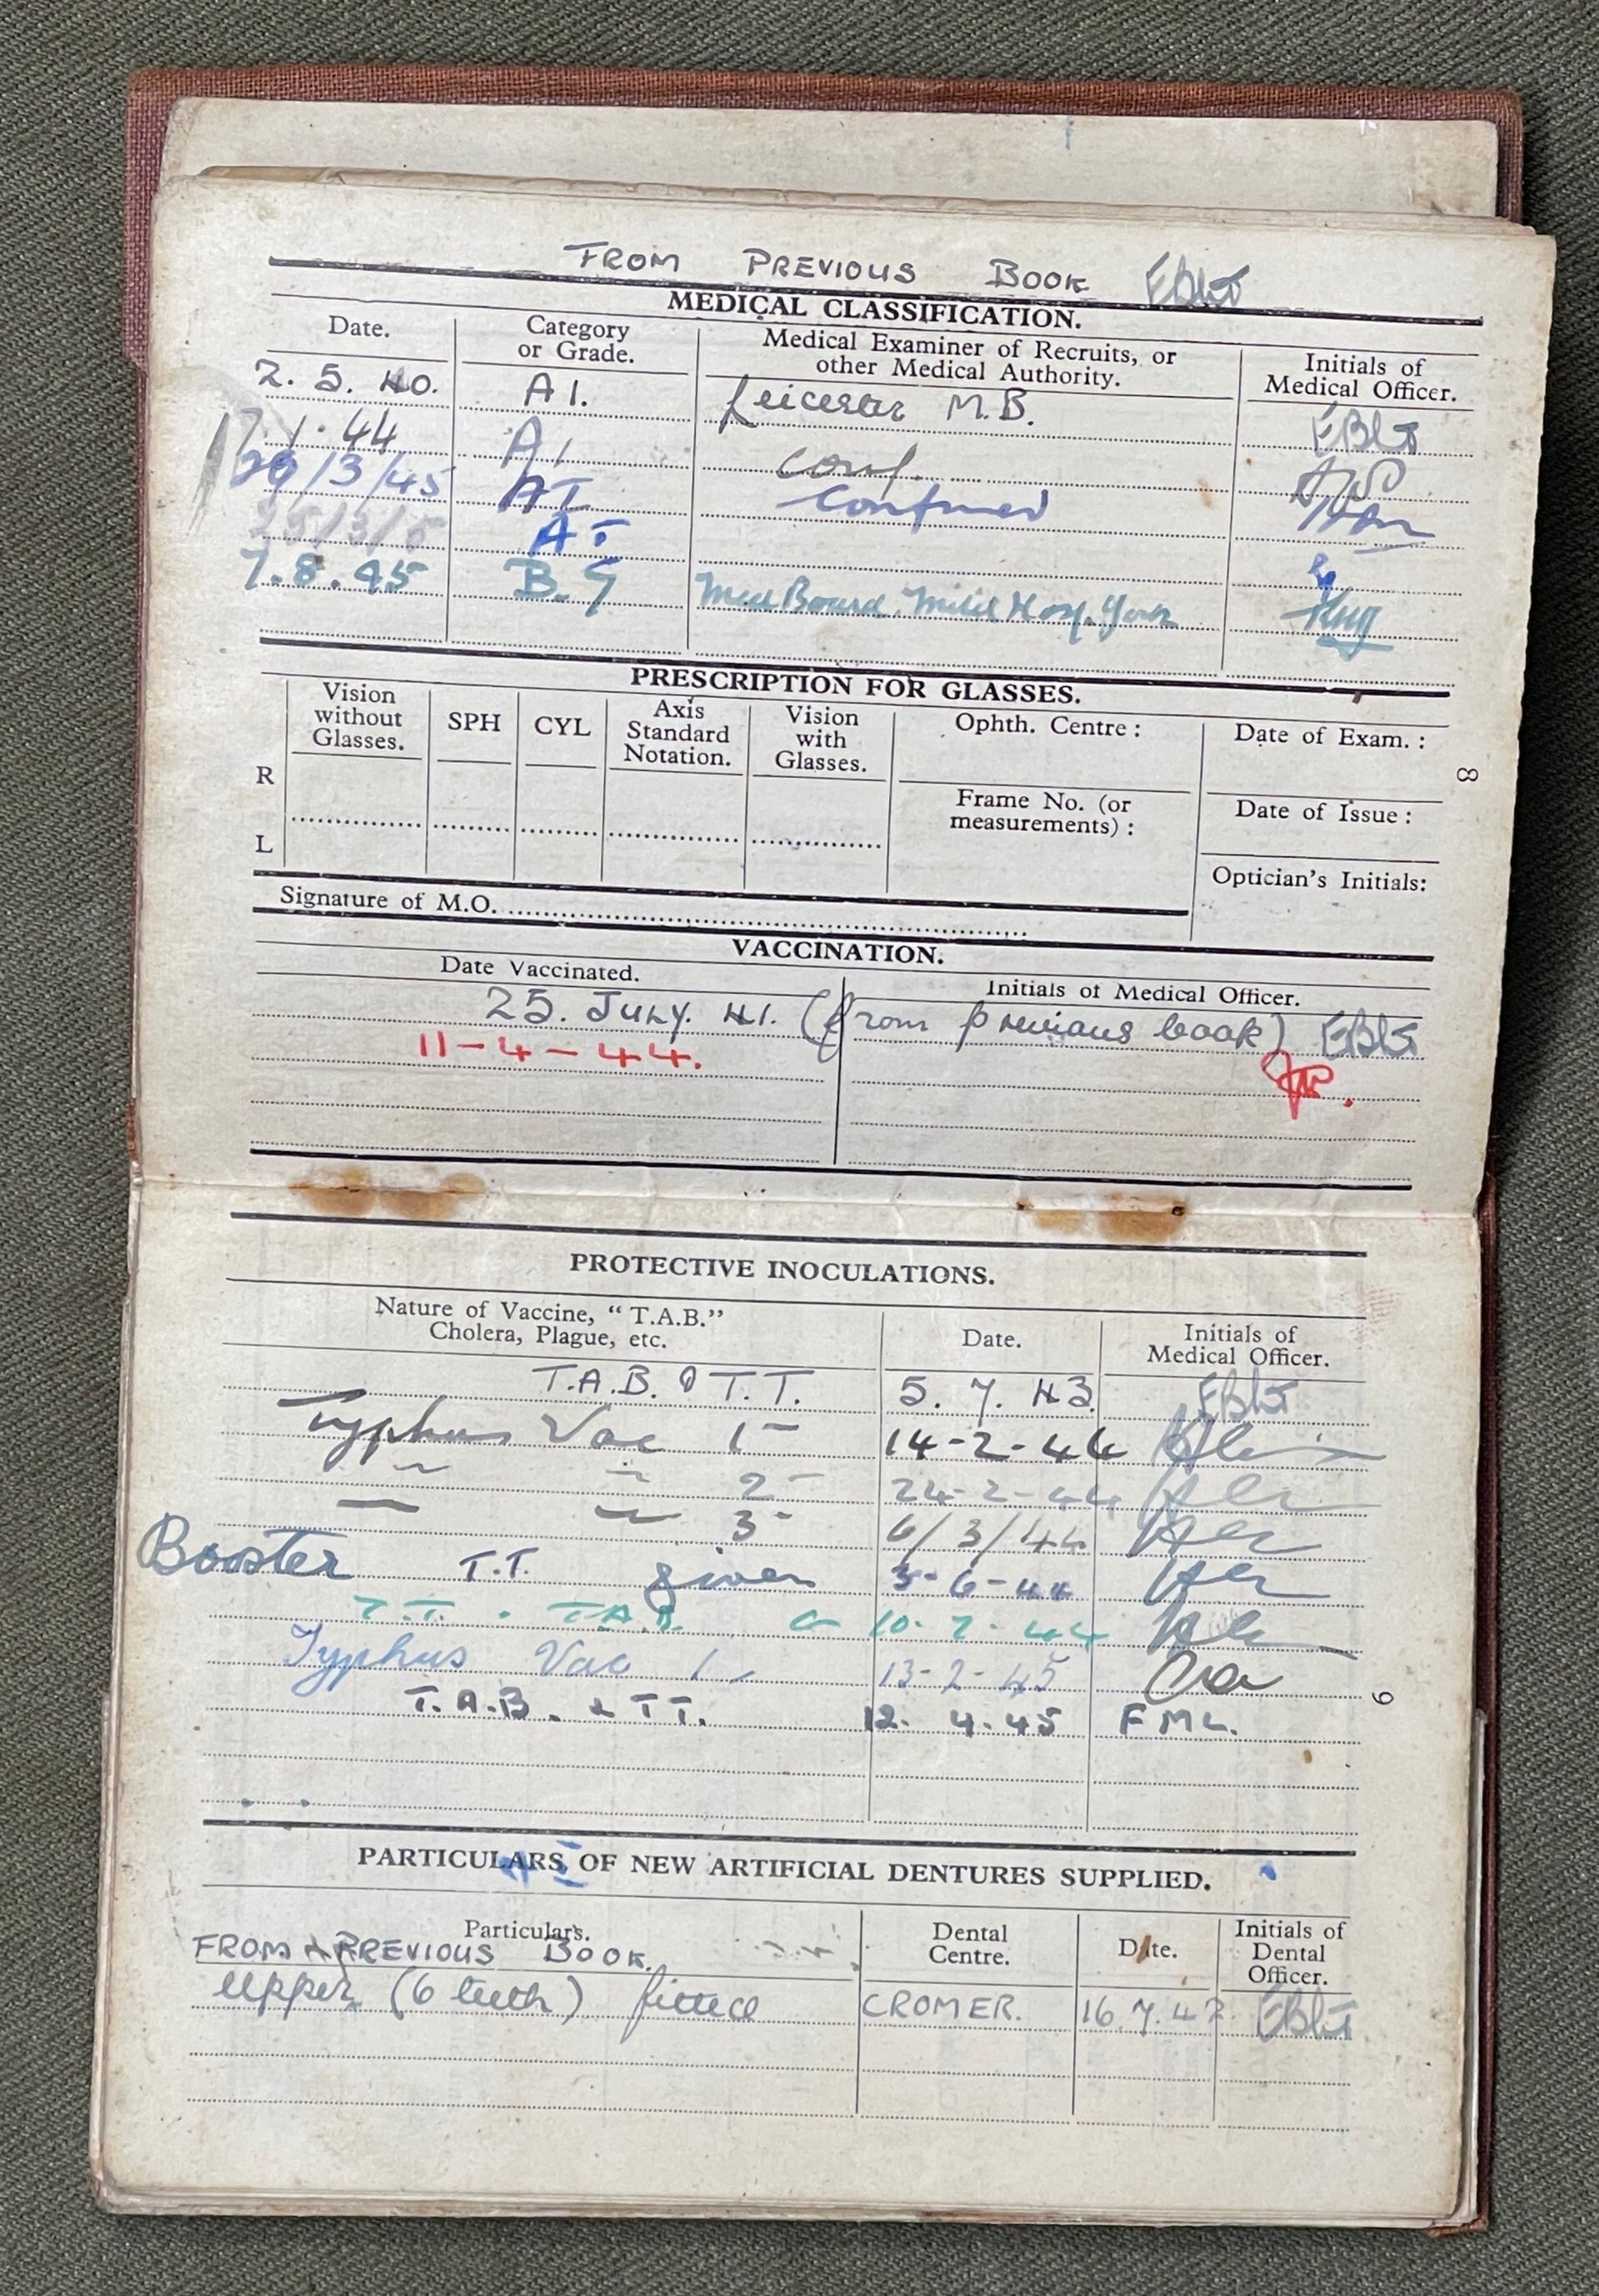 FROM PREVIOUS BOOK
MEDICAL CLASSIFICATION.
Date. Category or Grade. Medical Examiner of Recruits, or other Medical Authority. Initials of Medical Officer.
2. 5. 40. A1. Leicester M.B.
1. 44 A1 conf.
29/3/45 A I confirmed
A I
7.8.45 B. 7 Med Board. Milit Hosp. York
PRESCRIPTION FOR GLASSES.
Vision without Glasses. SPH CYL Axis Standard Notation. Vision with Glasses. Ophth. Centre : Date of Exam. :
R
8
Frame No. (or measurements) : Date of Issue :
L
Optician's Initials:
Signature of M.O.
VACCINATION.
Date Vaccinated. Initials of Medical Officer.
25. JULY. 41. (from previous book)
11-4-44.
PROTECTIVE INOCULATIONS.
Nature of Vaccine, "T.A.B." Cholera, Plague, etc. Date. Initials of Medical Officer.
T.A.B. & T.T. 5. 7. 43.
Typhus Vac 1 14-2-44
~ ~ 2 24-2-44
~ ~ 3 6/3/44
Booster T.T. given 3-6-44
T.T. . T.A.B. 10.7.44
Typhus Vac 1 13-2-45
T.A.B. & TT. 12. 4.45 F M L.
9
PARTICULARS OF NEW ARTIFICIAL DENTURES SUPPLIED.
A I
Particulars. Dental Centre. Date. Initials of Dental Officer.
FROM PREVIOUS BOOK.
Upper (6 teeth) fitted CROMER. 16.7.42.